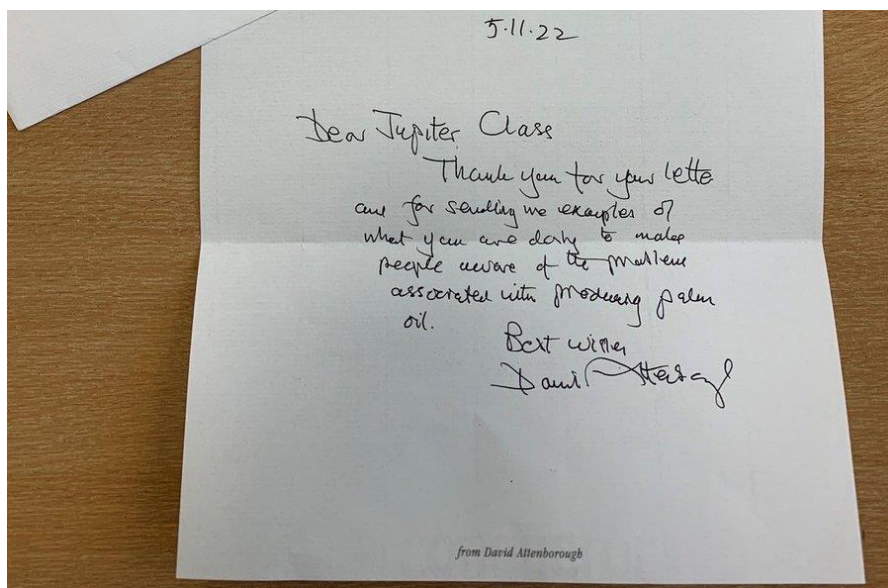 5.11.22
Dear Jupiter Class
Thank you for your letter
and for sending me examples of
what you are doing to make
people aware of the problems
associated with producing palm
oil.
Best wishes
David Attenborough
from David Attenborough